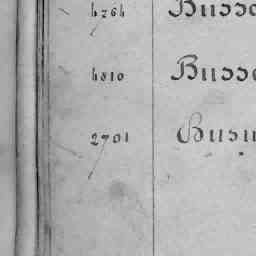 4264 Busse
4810 Busse
2701 Busu